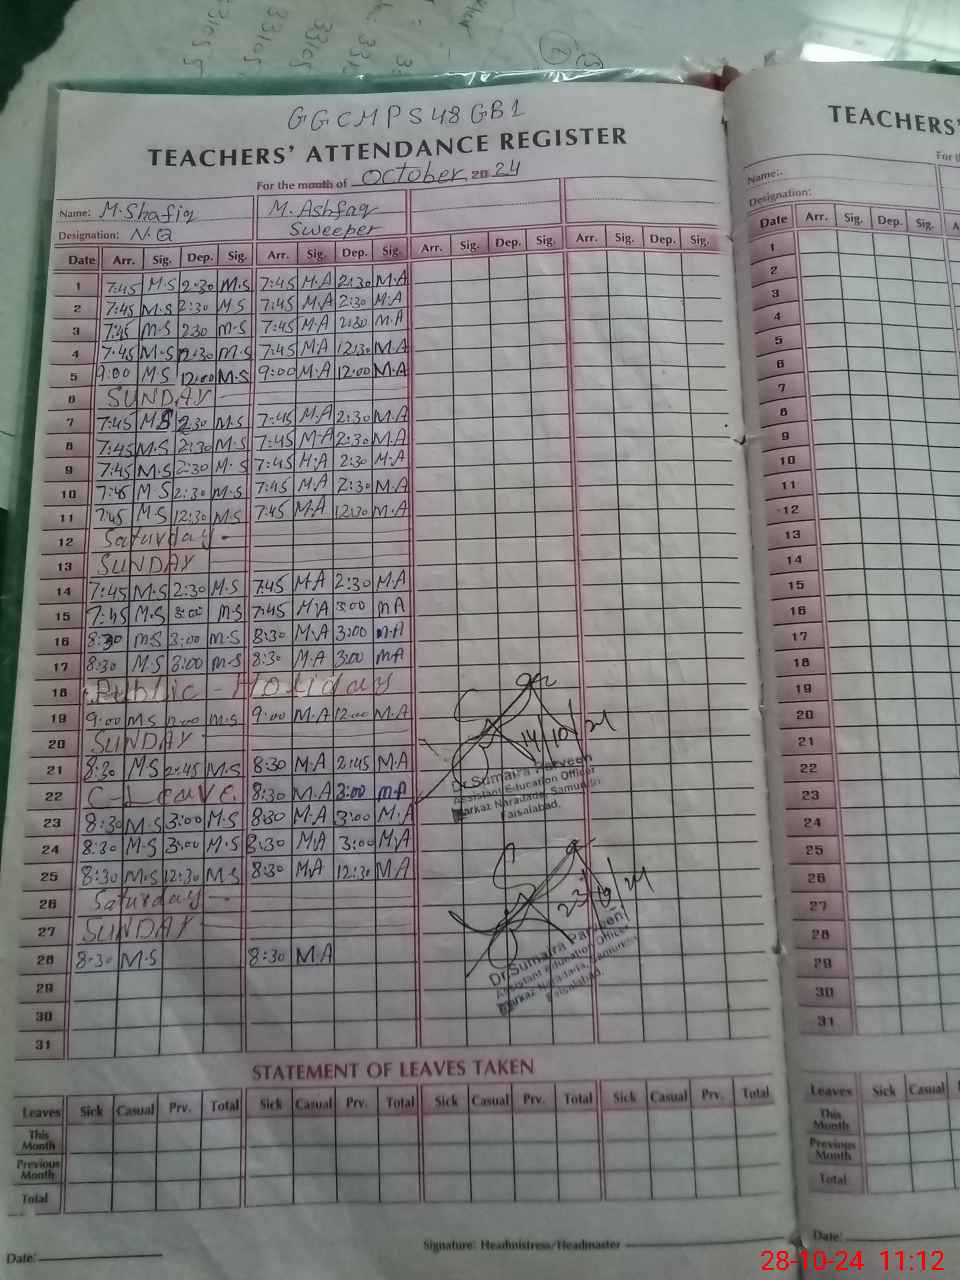 GGCMPS 48 GB1
TEACHERS' ATTENDANCE REGISTER
For the month of October 2024
Name: M.Shafiq M. Ashfaq
Designation: N.Q Sweeper
Date Arr. Sig. Dep. Sig. Arr. Sig. Dep. Sig. Arr. Sig. Dep. Sig. Arr. Sig. Dep. Sig.
1 7:45 M.S 2:30 M.S 7:45 M.A 2:30 M.A
2 7:45 M.S 2:30 M.S 7:45 M.A 2:30 M.A
3 7:45 m.S 2:30 m.S 7:45 M.A 2:30 M.A
4 7:45 M.S 12:30 m.S 7:45 M.A 12:30 M.A
5 9:00 M.S 12:00 M.S 9:00 M.A 12:00 M.A
6 SUNDAY
7 7:45 M.S 2:30 M.S 7:45 M.A 2:30 M.A
8 7:45 M.S 2:30 M.S 7:45 M.A 2:30 M.A
9 7:45 M.S 2:30 M.S 7:45 M.A 2:30 M.A
10 7:45 M.S 2:30 M.S 7:45 M.A 2:30 M.A
11 7:45 M.S 12:30 M.S 7:45 M.A 12:30 M.A
12 Saturday
13 SUNDAY
14 7:45 M.S 2:30 M.S 7:45 M.A 2:30 M.A
15 7:45 M.S 3:00 m.S 7:45 M.A 3:00 m.A
16 8:30 m.S 3:00 m.S 8:30 M.A 3:00 m.A
17 8:30 M.S 3:00 m.S 8:30 M.A 3:00 m.A
18 Public - Holiday
19 9:00 m.S 12:00 m.S 9:00 M.A 12:00 M.A
20 SUNDAY
21 8:30 M.S 2:45 M.S 8:30 M.A 2:45 M.A
22 C-Leave. 8:30 M.A 3:00 m.A
23 8:30 M.S 3:00 M.S 8:30 M.A 3:00 M.A
24 8:30 M.S 3:00 M.S 8:30 M.A 3:00 M.A
25 8:30 M.S 12:30 M.S 8:30 M.A 12:30 M.A
26 Saturday
27 SUNDAY
28 8:30 M.S 8:30 M.A
29
30
31
14/10/24
Dr.Sumaira Parveen
Assistant Education Officer
Markaz Naradada, Samundri
Faisalabad.
23/10/24
Dr.Sumaira Parveen
Assistant Education Officer
Markaz Naradada, Samundri
Faisalabad.
STATEMENT OF LEAVES TAKEN
Leaves Sick Casual Prv. Total Sick Casual Prv. Total Sick Casual Prv. Total Sick Casual Prv. Total
This Month
Previous Month
Total
Date:
Signature: Headmistress/Headmaster
TEACHERS'
For th
Name:
Designation:
Date Arr. Sig. Dep. Sig. A
1
2
3
4
5
6
7
8
9
10
11
12
13
14
15
16
17
18
19
20
21
22
23
24
25
26
27
28
29
30
31
Leaves Sick Casual
This Month
Previous Month
Total
Date:
28-10-24 11:12